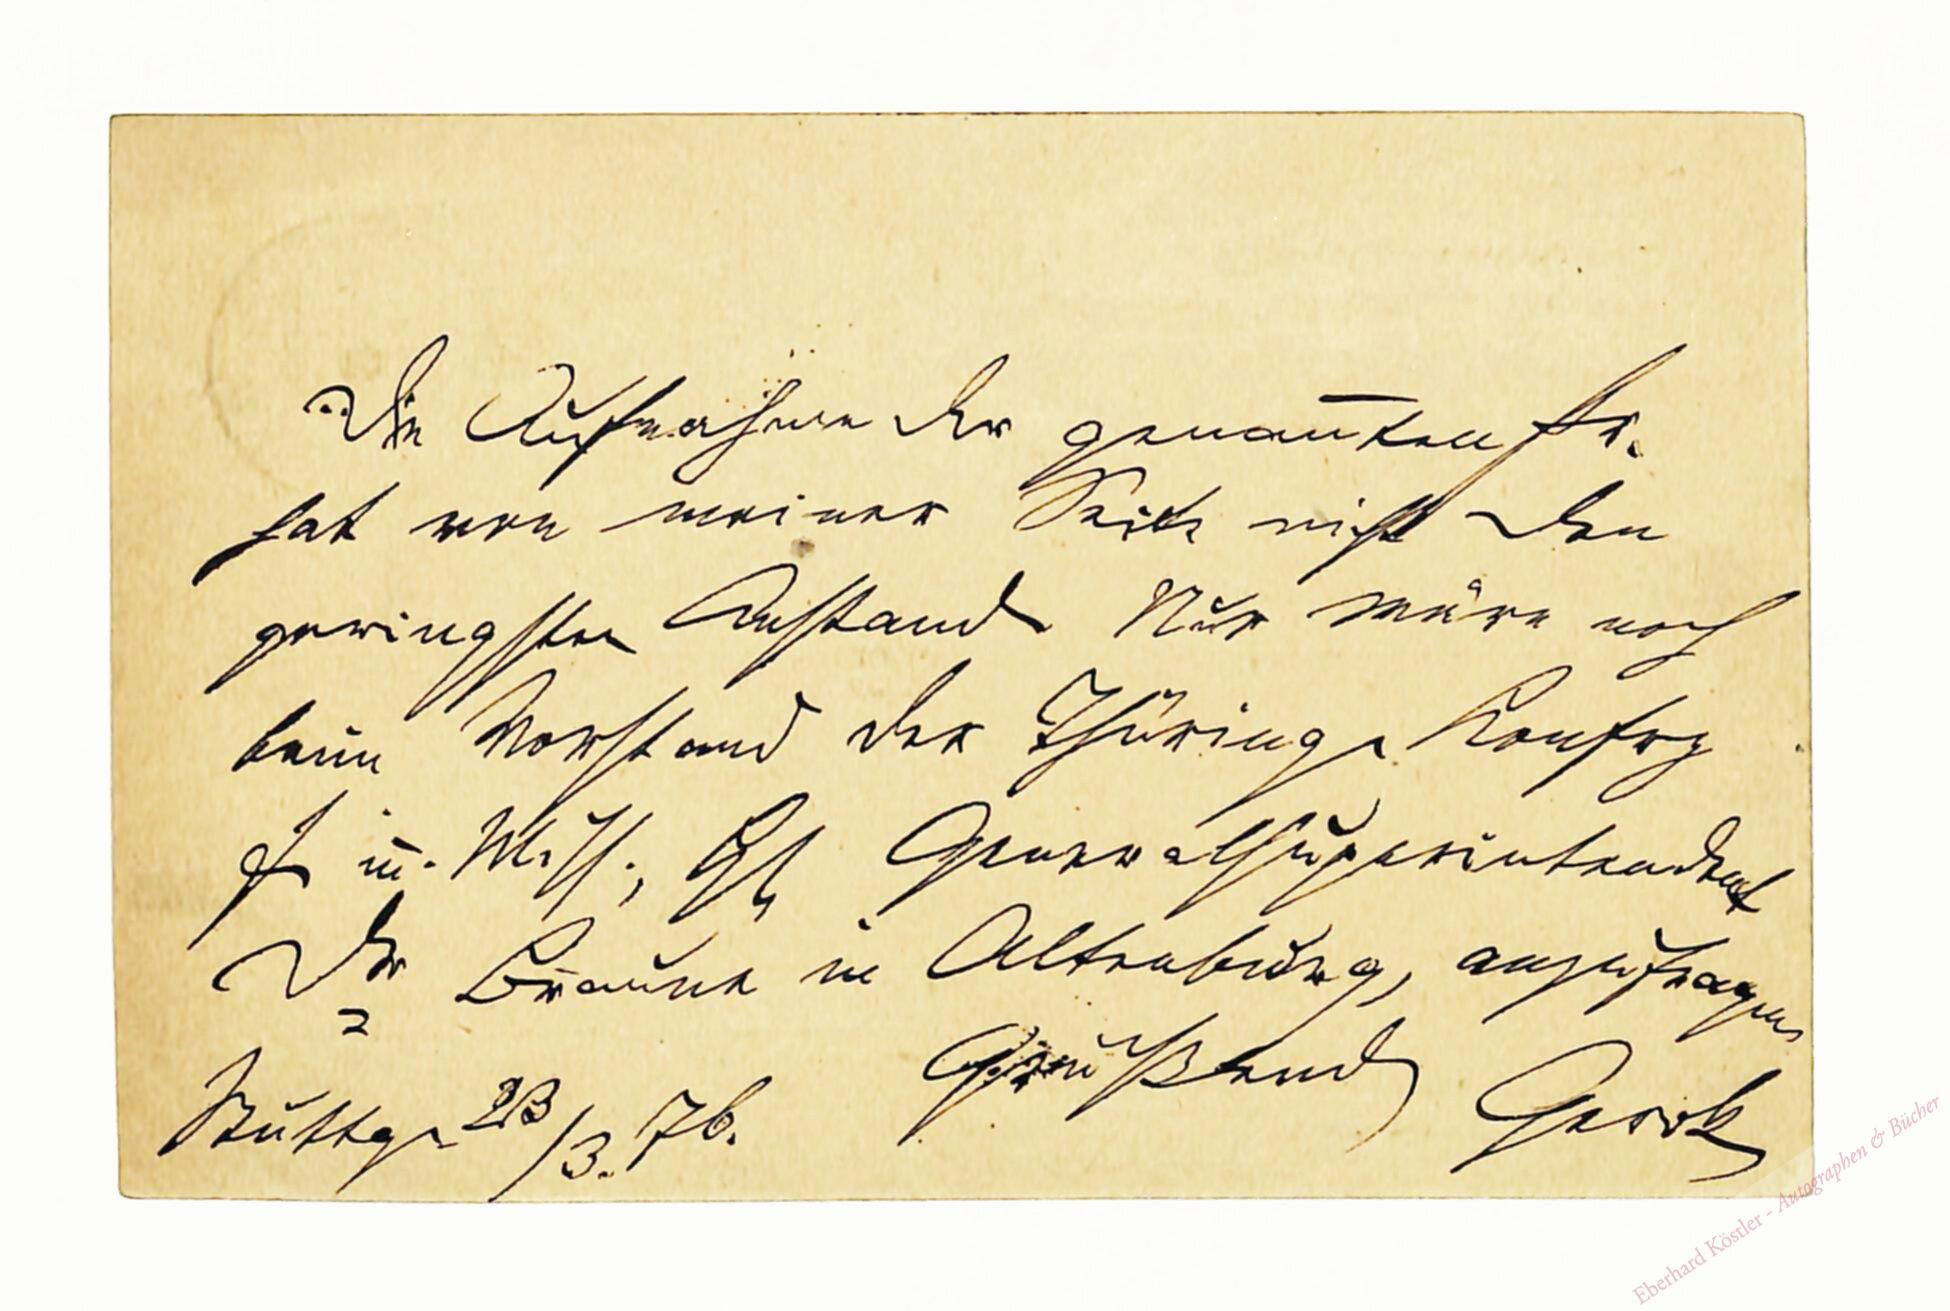 Die Aufnahme der genannten
hat von meiner Seite nicht den
geringsten Anstand. Nur wäre noch
beim Vorstand der Thüring. Konferz
f. inn. Miss., Generalsuperintendent
Dr Braune in Altenburg, anzufragen
Grüßend
Stuttg. 23/3. 76. Gerok
Eberhard Köstler - Autographen & Bücher